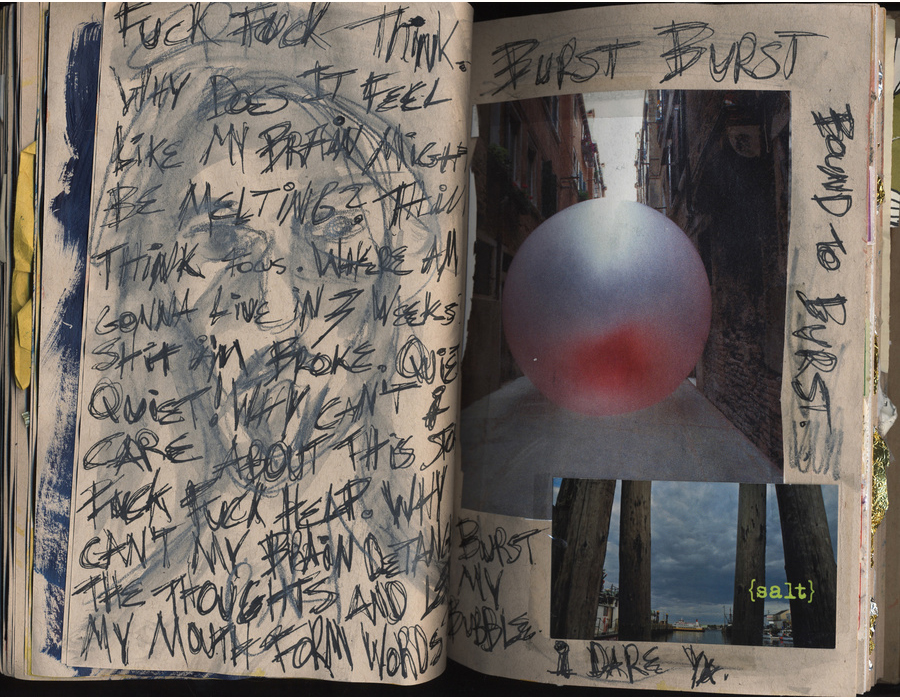 FUCK FUCK THiNK.
WHY DOES IT FEEL
LiKE MY BRAiN MiGH
BE MELTiNG? THiN
THiNK FOCUS. WHERE AM
GONNA LiVE iN 3 WEEKS
SHiT i'M BROKE. QUiE
QUiET! WHY CAN'T I
CARE ABOUT THiS STO
FUCK FUCK HELP. WHY
CAN'T MY BRAiN DETANG
THE THOUGHTS AND LE
MY MOUTH FORM WORDS.
BURST BURST
BOUND to BURST.
{salt}
BURST
MY
BUBBLE.
I DARE Ya.